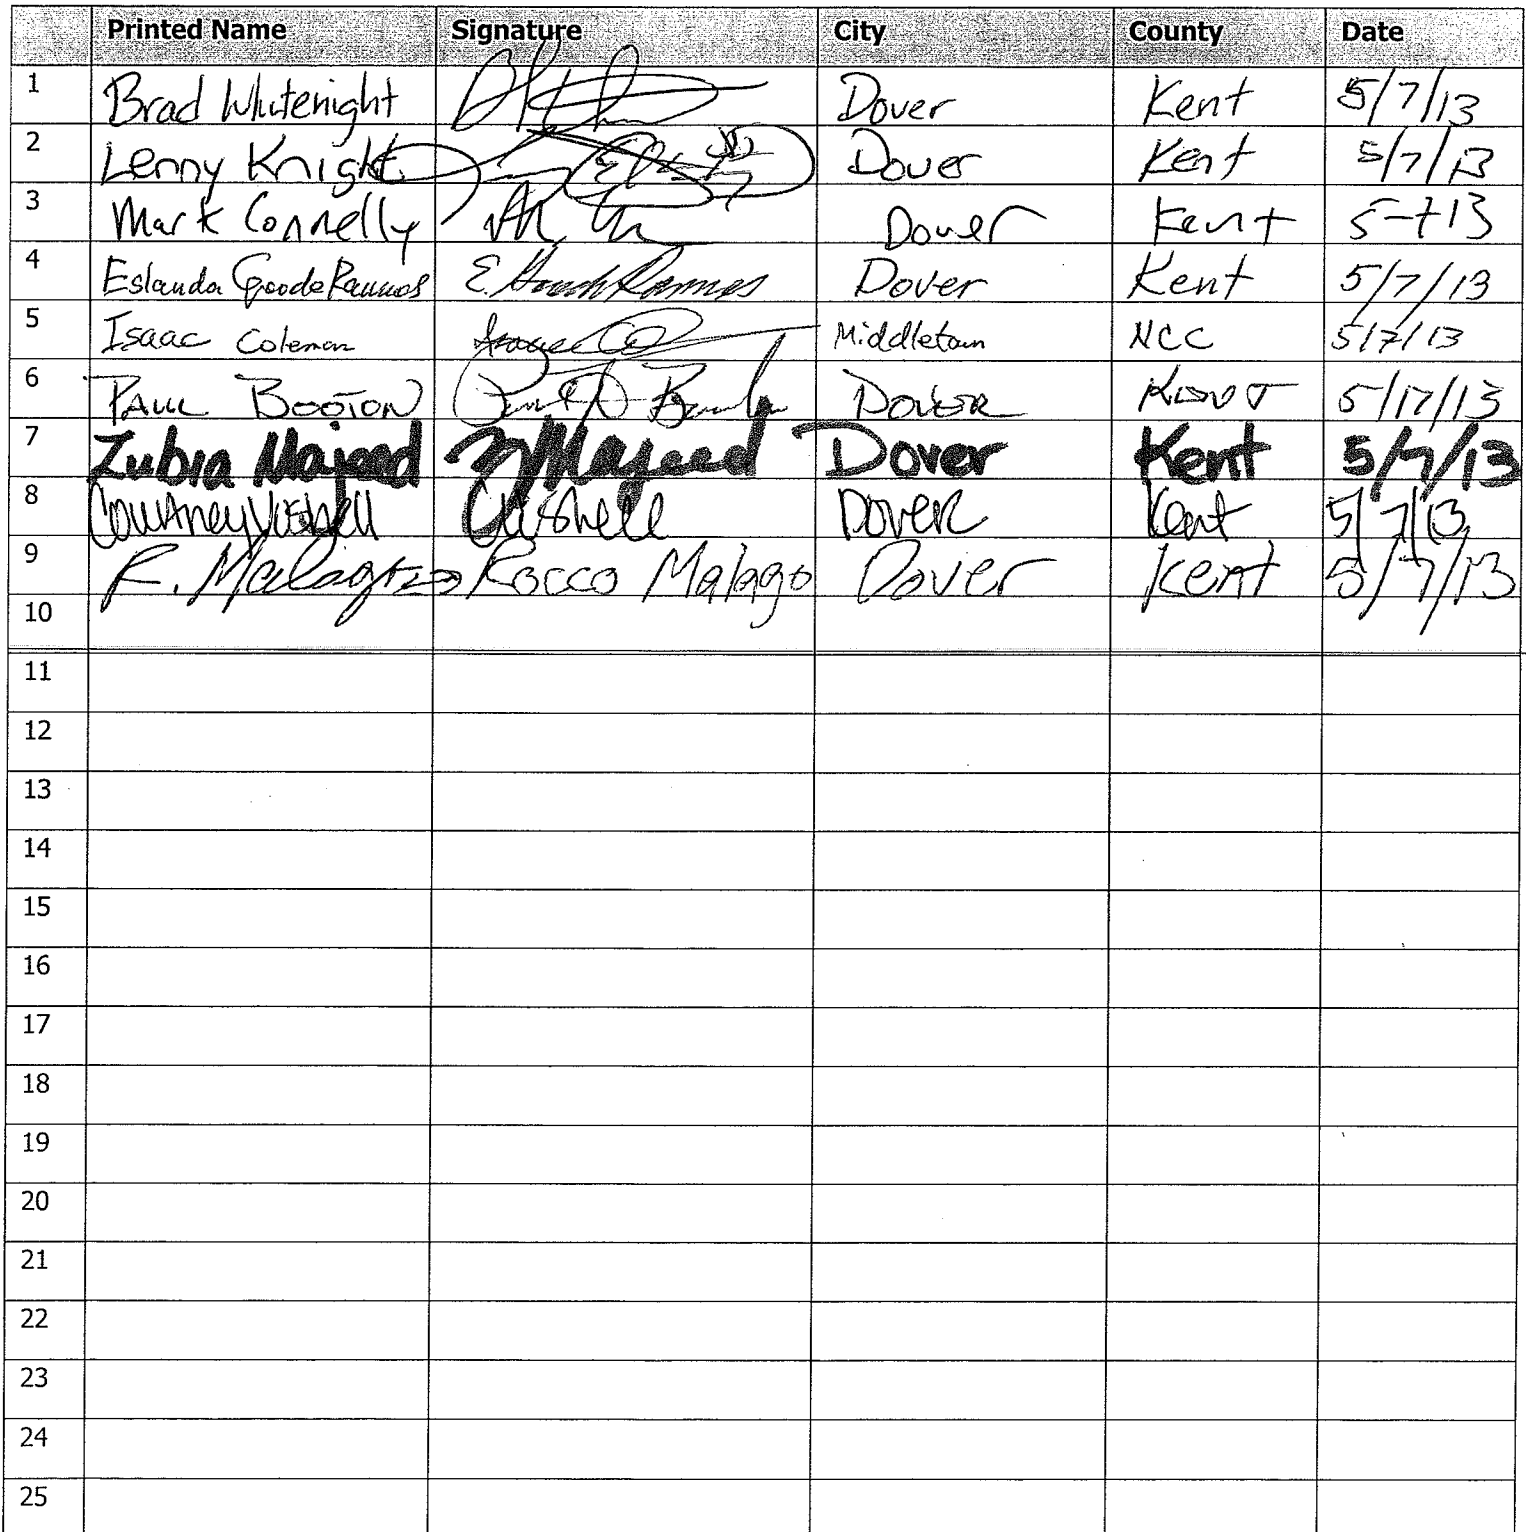 Printed Name Signature City County Date
1 Brad Whitenight Dover Kent 5/7/13
2 Lenny Knight Dover Kent 5/7/13
3 Mark Connelly Dover Kent 5-7 13
4 Eslanda Goode Rammos E. Goode Rammos Dover Kent 5/7/13
5 Isaac Coleman Middletown NCC 5/7/13
6 PAUL BOOTON DOVER KENT 5/17/13
7 Zubia Majeed ZMajeed Dover Kent 5/7/13
8 Courtney Vishell CVishell DOVER Kent 5/7/13
9 R. Malago Rocco Malago Dover Kent 5/7/13
10
11
12
13
14
15
16
17
18
19
20
21
22
23
24
25